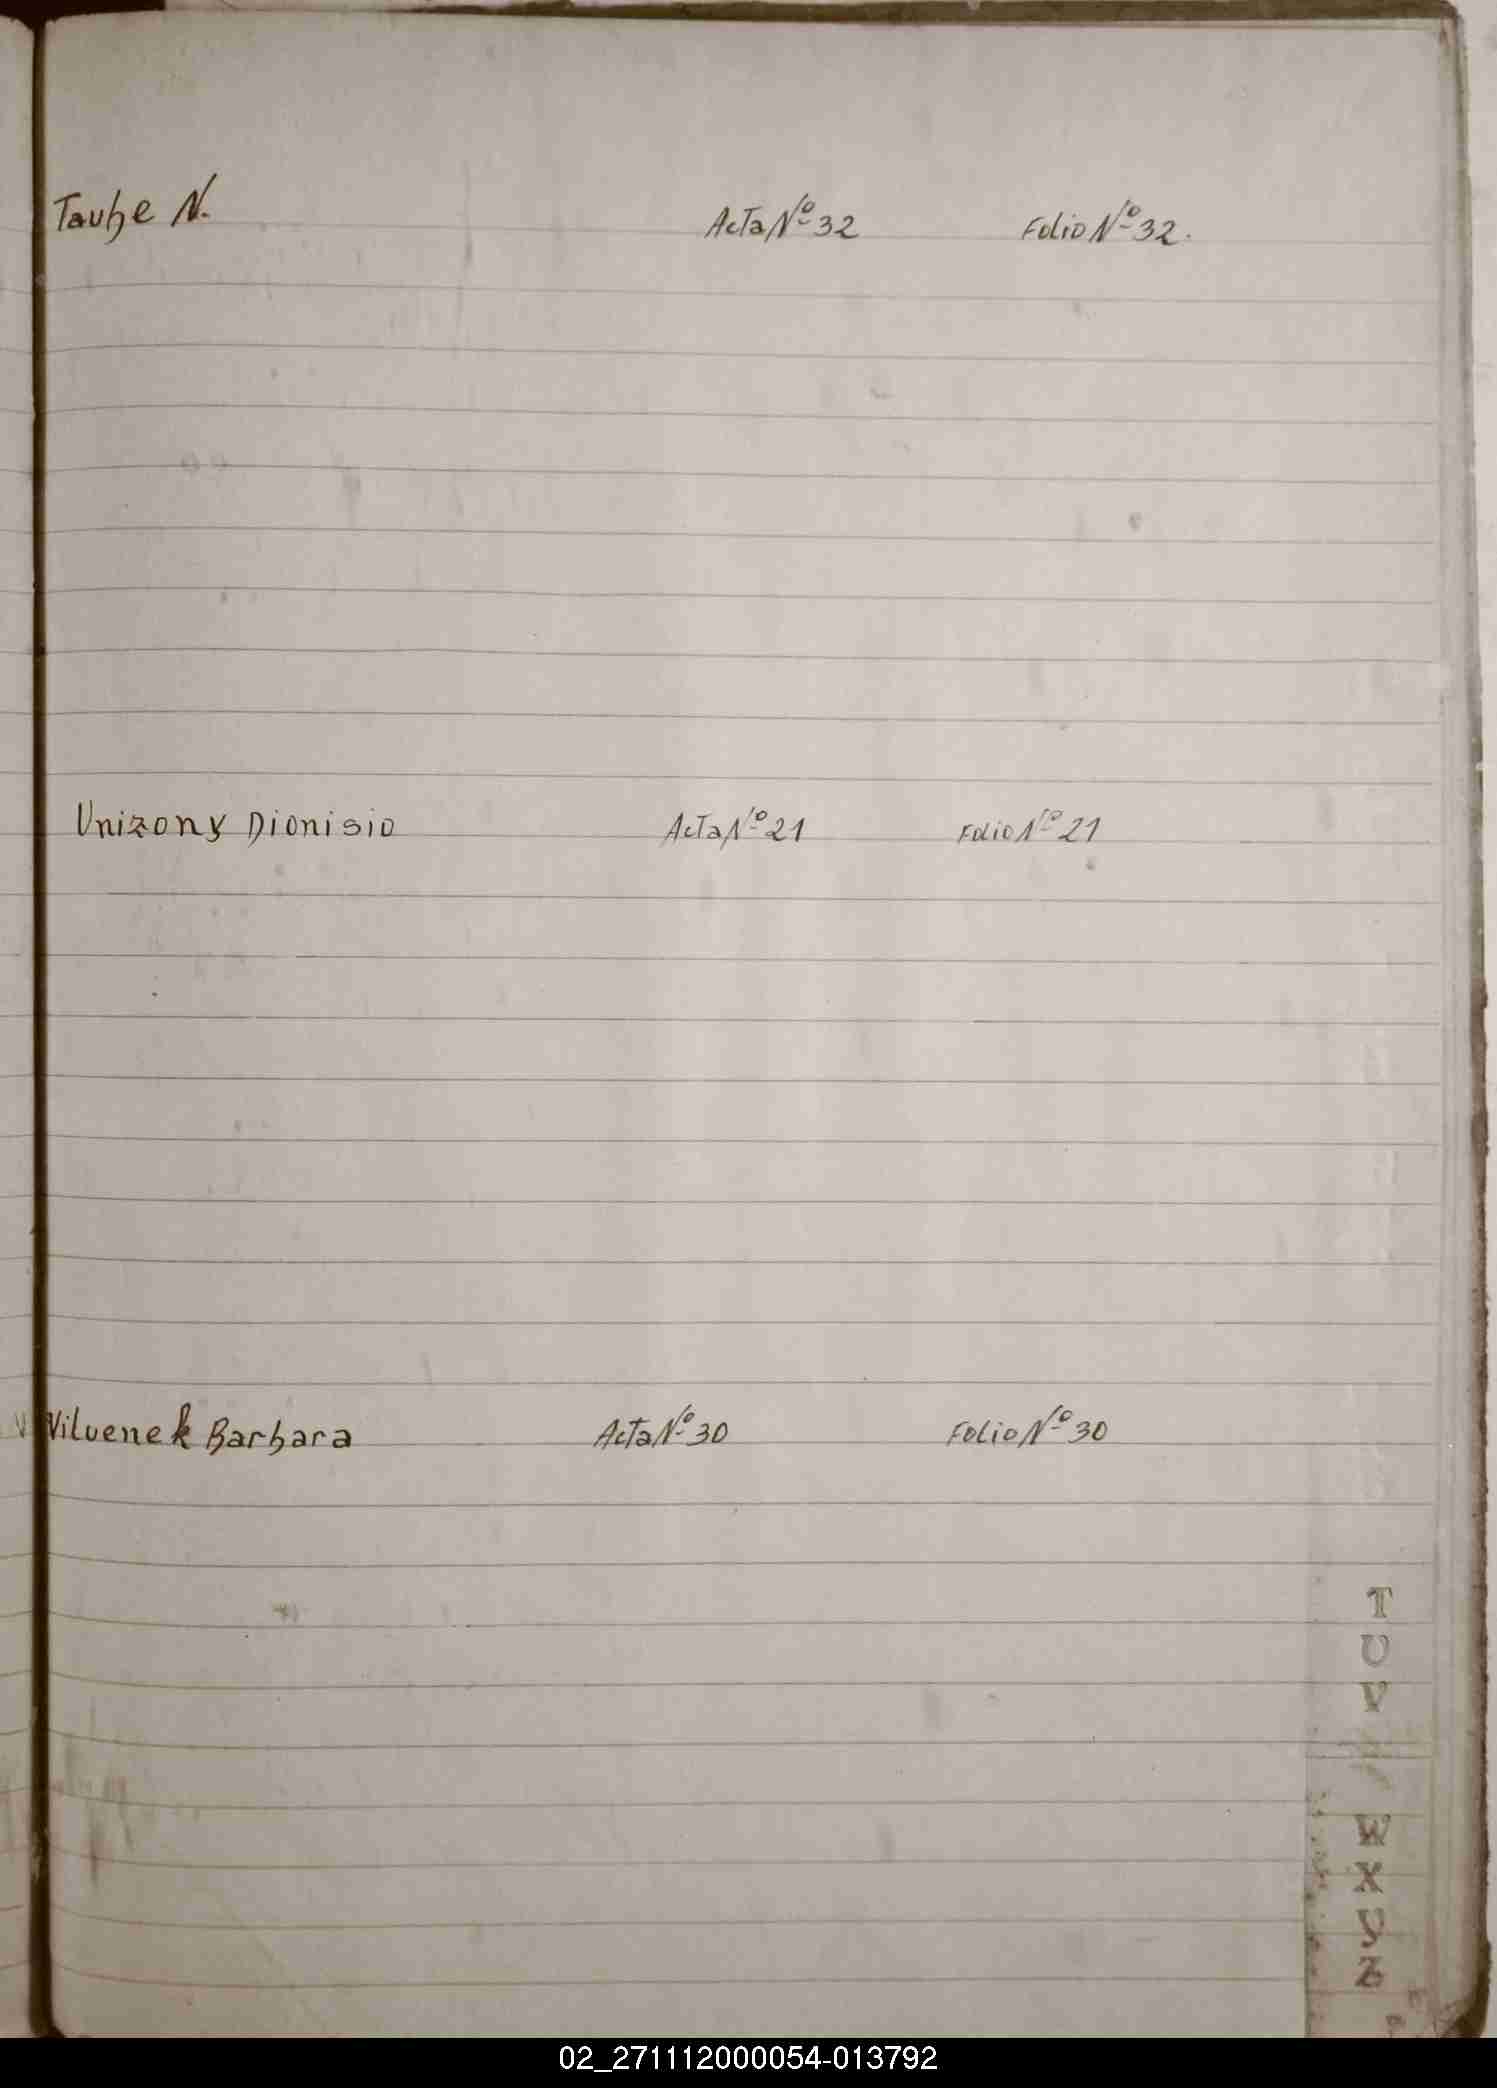 Taube N. Acta Nº 32 Folio Nº 32.
Unizony Dionisio Acta Nº 21 Folio Nº 21
Viluenek Barbara Acta Nº 30 Folio Nº 30
T
U
V
W
X
Y
Z
02_271112000054-013792